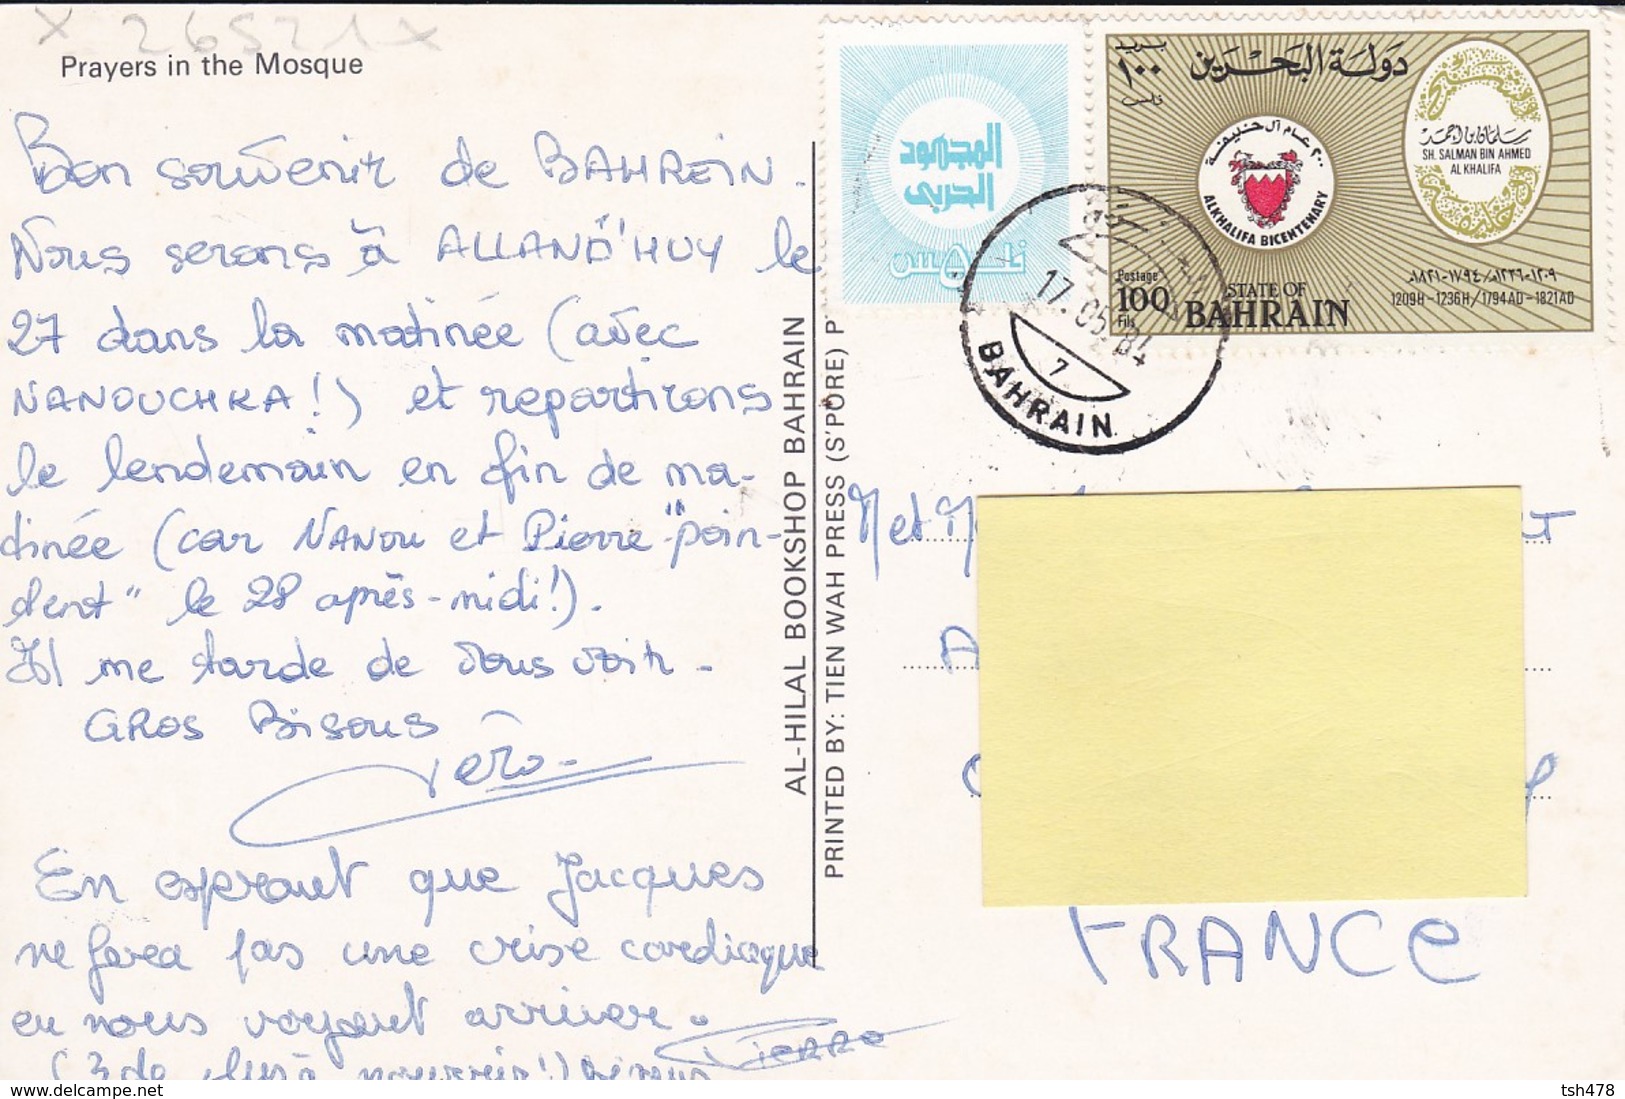 x 26521 x
Prayers in the Mosque
Bon souvenir de BAHREIN.
Nous serons à ALLAND'HUY le
27 dans la matinée (avec
NANOUCHKA!) et repartirons
le lendemain en fin de ma-
tinée (car NANOU et Pierre "poin-
tent" le 28 après-midi!).
Il me tarde de vous voir.
GROS Bisous
Véro
En espérant que Jacques
ne fera pas une crise cardiaque
en nous voyant arriver.
Pierre
(3 de plus à nourrir!) Bisous
AL-HILAL BOOKSHOP BAHRAIN
PRINTED BY: TIEN WAH PRESS (S'PORE) P
المجهود
الحربي
فلوس
بريد
١٠٠
فلس
دولة البحرين
٢٠٠ عام آل خليفة
ALKHALIFA BICENTENARY
سلمان بن أحمد
SH. SALMAN BIN AHMED
AL KHALIFA
١٢٠٩-١٢٣٦هـ/١٧٩٤-١٨٢١م
1209H-1236H/1794AD-1821AD
Postage
100
Fils
STATE OF
BAHRAIN
17.05.84
7
BAHRAIN
M et M
A
FRANCE
tsh478